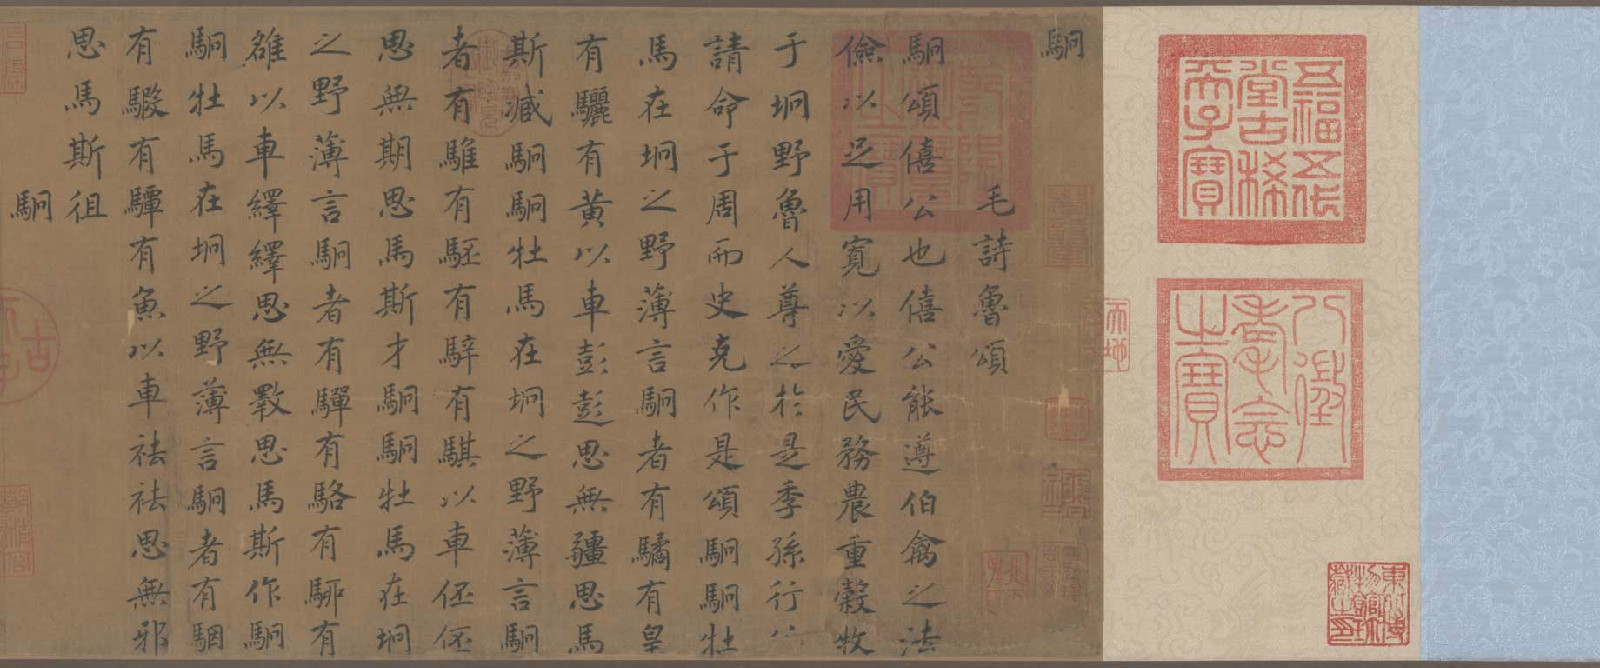 五福五代
堂古稀
天子寶
八徵
耄念
之寶
東北博
物館珍
藏之印
駉
毛詩魯頌
駉頌僖公也僖公能遵伯禽之法
儉以足用寬以愛民務農重穀牧
于坰野魯人尊之於是季孫行
請命于周而史克作是頌駉駉牡
馬在坰之野薄言駉者有驈有皇
有驪有黃以車彭彭思無疆思馬
斯臧駉駉牡馬在坰之野薄言駉
者有騅有駓有騂有騏以車伾伾
思無期思馬斯才駉駉牡馬在坰
之野薄言駉者有驒有駱有駵有
雒以車繹繹思無斁思馬斯作駉
駉牡馬在坰之野薄言駉者有駰
有騢有驔有魚以車祛祛思無邪
思馬斯徂
駉